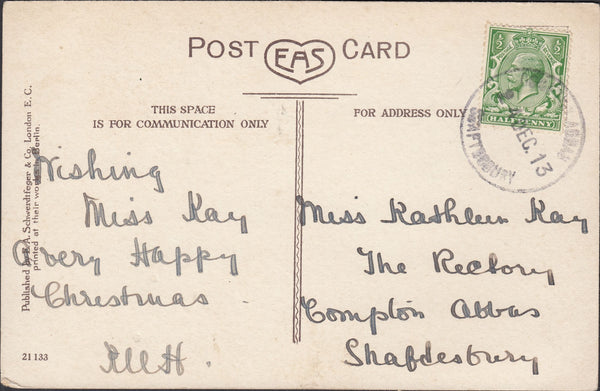 POST EAS CARD
THIS SPACE
IS FOR COMMUNICATION ONLY
FOR ADDRESS ONLY
HALFPENNY
½ ½
SHAFTESBURY
DEC. 13
Published by E.A. Schwerdtfeger & Co. London E.C.
printed at their works in Berlin.
Wishing
Miss Kay
a very Happy
Christmas
21133
Miss Kathleen Kay
The Rectory
Compton Abbas
Shaftesbury